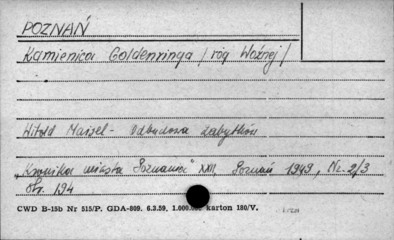 POZNAŃ
Kamienica Goldenringa / róg Woźnej /
Witold Maisel - Odbudowa zabytków
"Kronika miasta Poznania" XXII, Poznań 1949, Nr. 2/3
str. 194
CWD B-15b Nr 515/P. GDA-809. 6.3.59. 1.000.000 karton 180/V.